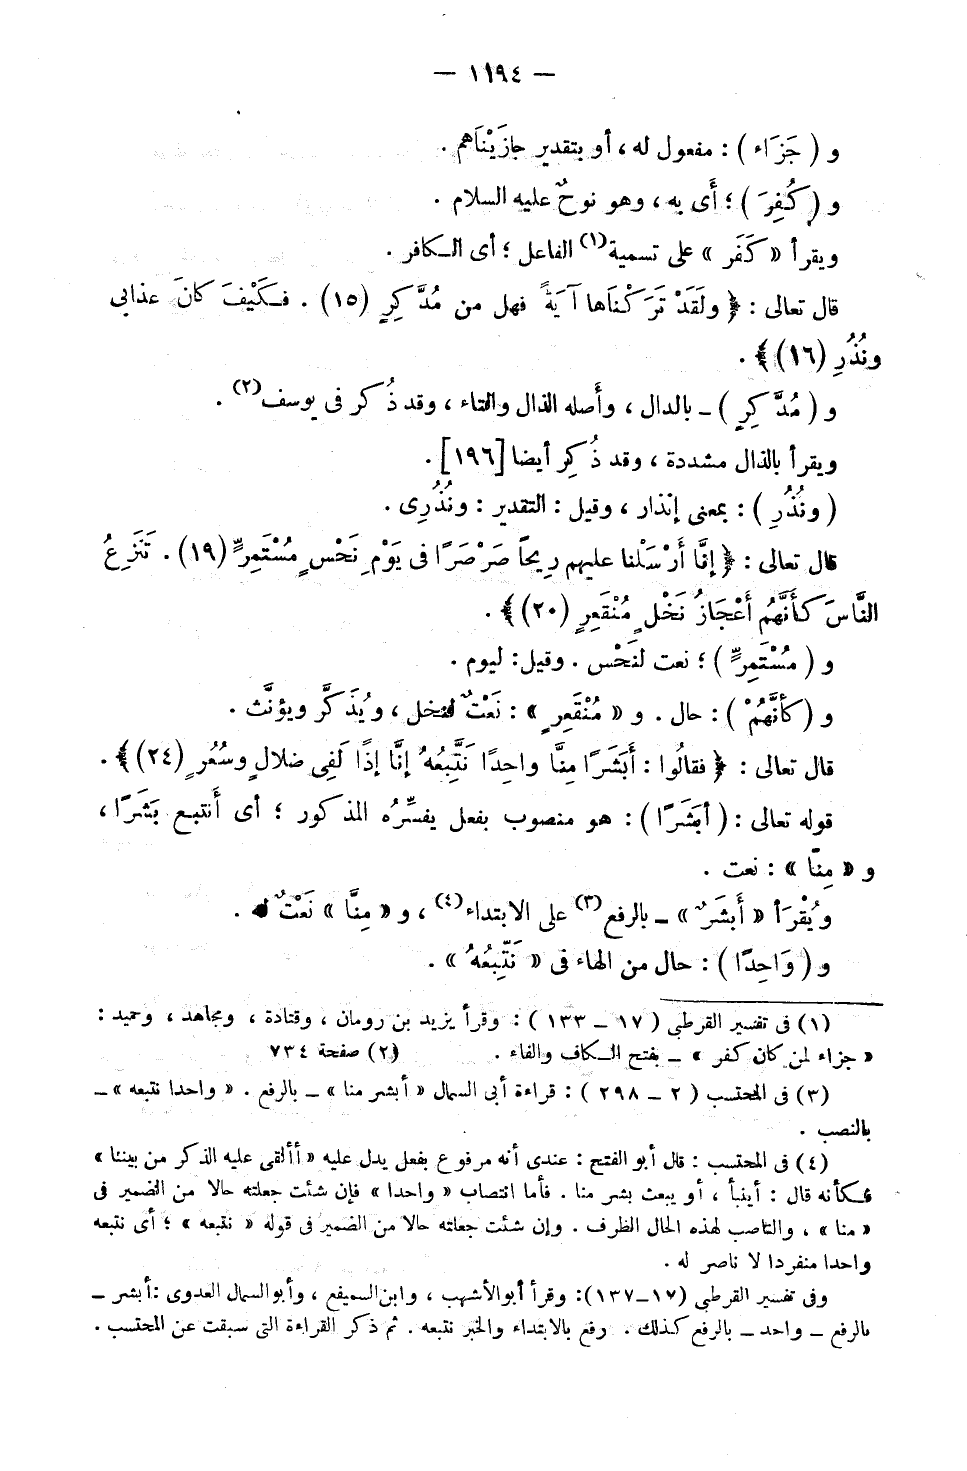 — ١١٩٤ —
و ( جَزَاء ) : مفعول له ، أو بتقدير جازَيْنَاهم .
و ( كُفِرَ ) ؛ أَى به ، وهو نوحٌ عليه السلام .
ويقرأ « كَفَر » على تسمية(١) الفاعل ؛ أى الـكافر .
قال تعالى : ﴿ ولَقَدْ تَرَكْنَاها آيَةً فهل من مُدَّكِرٍ (١٥) . فـكَيْفَ كانَ عذابى
ونُذُرِ (١٦)﴾ .
و ( مُدَّكِرٍ ) ـ بالدال ، وأَصله الذال والتاء ، وقد ذُكر فى يوسف(٢) .
ويقرأ بالذال مشددة ، وقد ذُكِر أيضا [١٩٦] .
( ونُذُرِ ) : بمعنى إنذار ، وقيل : التقدير : ونُذُرِى .
قال تعالى : ﴿ إنَّا أَرْسَلْنا عليهم رِيحاً صَرْصَرًا فى يَوْمِ نَحْسٍ مُسْتَمِرٍّ (١٩) . تَنْزِعُ
النَّاسَ كأَنَّهُم أَعْجَازُ نَخْلٍ مُنْقَعِرٍ (٢٠)﴾ .
و ( مُسْتَمِرٍّ ) ؛ نعت لنَحْس . وقيل: ليوم .
و ( كأنَّهُمْ ) : حال . و « مُنْقَعِرٍ » : نَعْتٌ لنخل ، ويُذَكَّر ويؤنَّث .
قال تعالى : ﴿ فقالُوا : أَبَشَرًا مِنَّا واحِدًا نَتَّبِعُهُ إنَّا إذًا لَفِى ضلالٍ وسُعُرٍ (٢٤)﴾ .
قوله تعالى : ( أبَشَرًا ) : هو منصوب بفعل يفسِّرُه المذكور ؛ أى أَنتبع بَشَرًا ،
و « مِنّا » : نعت .
ويُقْرَأ « أَبشَرٌ » ـ بالرفع(٣) على الابتداء(٤) ، و « مِنَّا » نَعْتٌ له .
و ( وَاحِدًا ) : حال من الهاء فى « نَتَّبِعُهُ » .
(١) فى تفسير القرطبى ( ١٧ ـ ١٣٣ ) : وقرأ يزيد بن رومان ، وقتادة ، ومجاهد ، وحميد :
« جزاء لمن كان كفر » ـ بفتح الـكاف والفاء . (٢) صفحة ٧٣٤
(٣) فى المحتسب ( ٢ ـ ٢٩٨ ) : قراءة أبى السمال « أبشر منا » ـ بالرفع . « واحدا نتبعه » ـ
بالنصب .
(٤) فى المحتسب : قال أبو الفتح : عندى أنه مرفوع بفعل يدل عليه « أألقى عليه الذكر من بيننا »
فـكأنه قال : أينبأ ، أو يبعث بشر منا . فأما انتصاب « واحدا » فإن شئت جعلته حالا من الضمير فى
« منا » ، والناصب لهذه الحال الظرف . وإن شئت جعلته حالا من الضمير فى قوله « نتبعه » ؛ أى نتبعه
واحدا منفردا لا ناصر له .
وفى تفسير القرطبى (١٧ـ١٣٧): وقرأ أبو الأشهب ، وابن السميفع ، وأبو السمال العدوى :أبشر ـ
بالرفع ـ واحد ـ بالرفع كذلك . رفع بالابتداء والخبر نتبعه . ثم ذكر القراءة التى سبقت عن المحتسب .